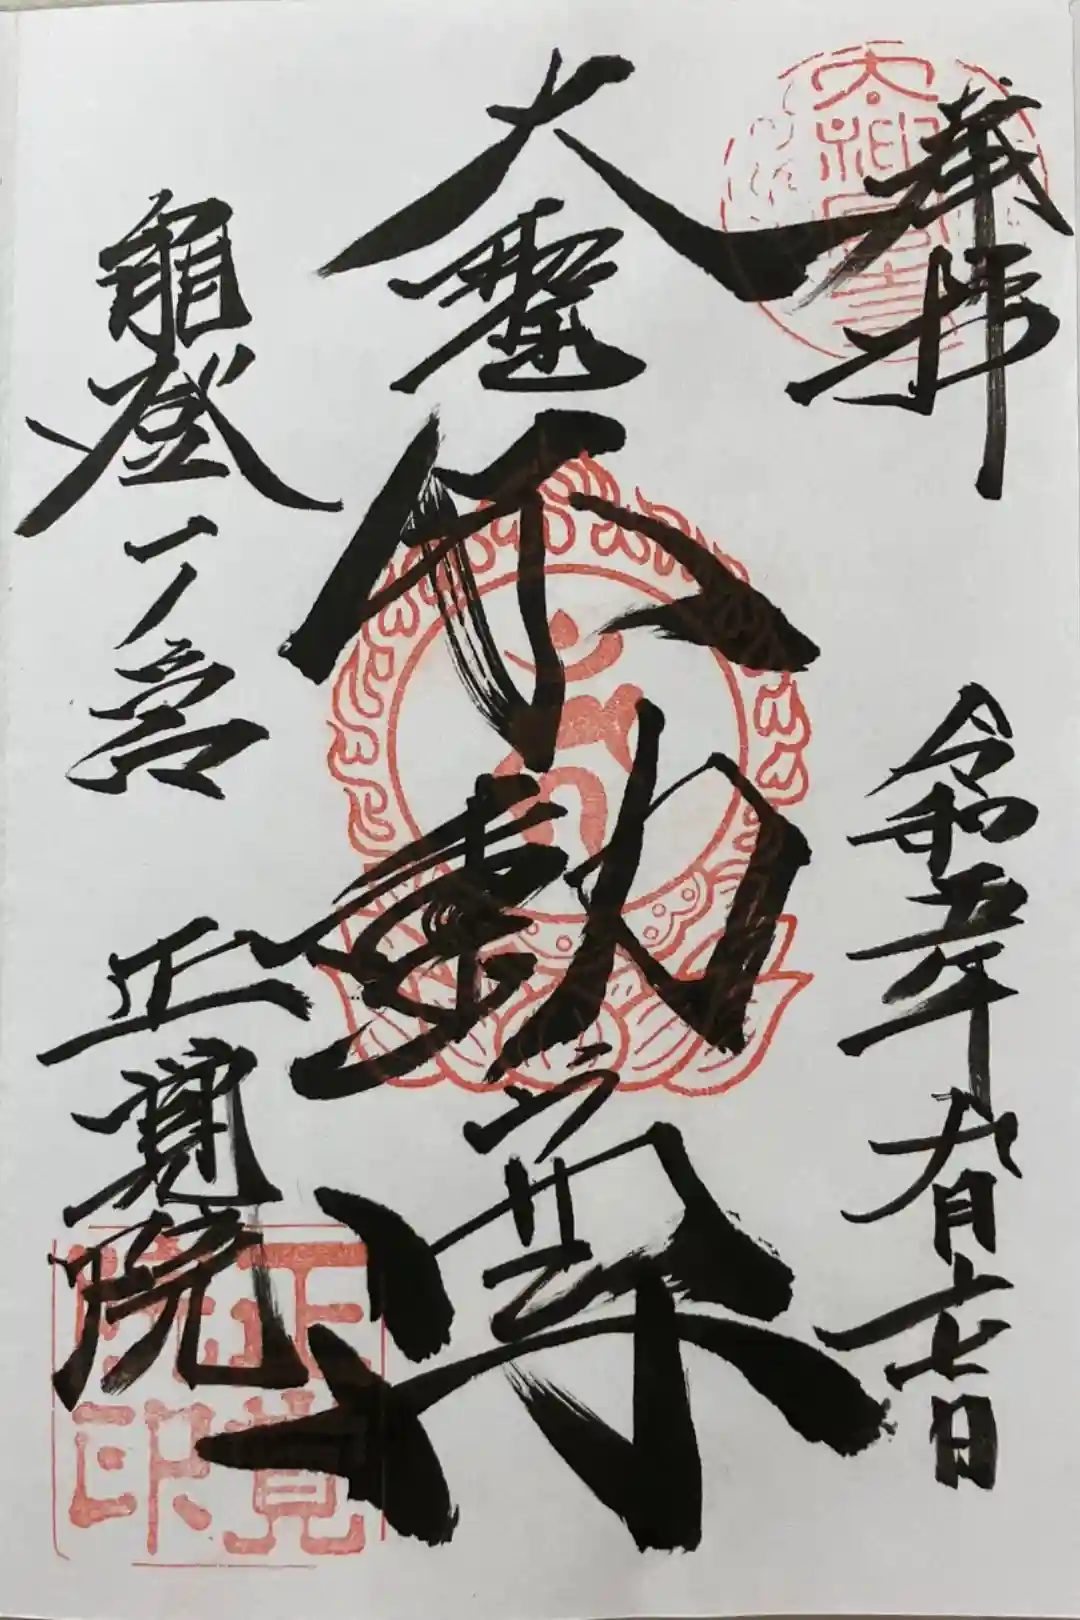 奉拝
令和五年九月十七日
大聖
不動尊
能登一ノ宮
正覚院
正覚
院印